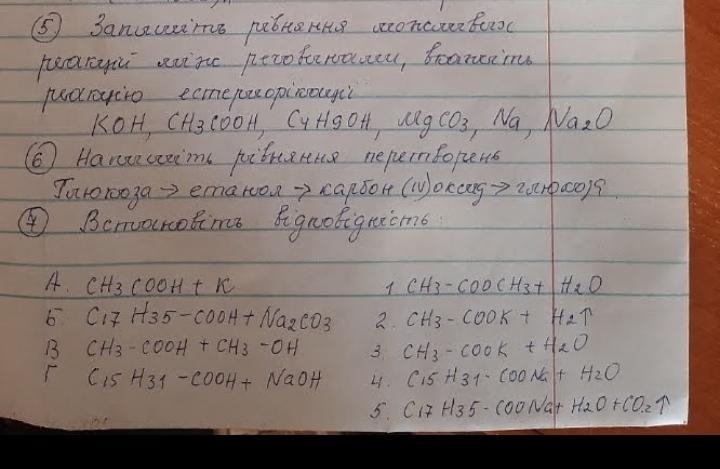 ⑤ Запишіть рівняння можливих
реакцій між речовинами, вкажіть
реакцію естерифікації
KOH, CH3COOH, C4H9OH, MgCO3, Na, Na2O
⑥ Напишіть рівняння перетворень
Глюкоза → етанол → карбон (IV) оксид → глюкоза.
⑦ Встановіть відповідність:
А. CH3COOH + K 1. CH3-COOCH3 + H2O
Б C17H35-COOH + Na2CO3 2. CH3-COOK + H2↑
В CH3-COOH + CH3-OH 3. CH3-COOK + H2O
Г C15H31-COOH + NaOH 4. C15H31-COONa + H2O
5. C17H35-COONa + H2O + CO2↑